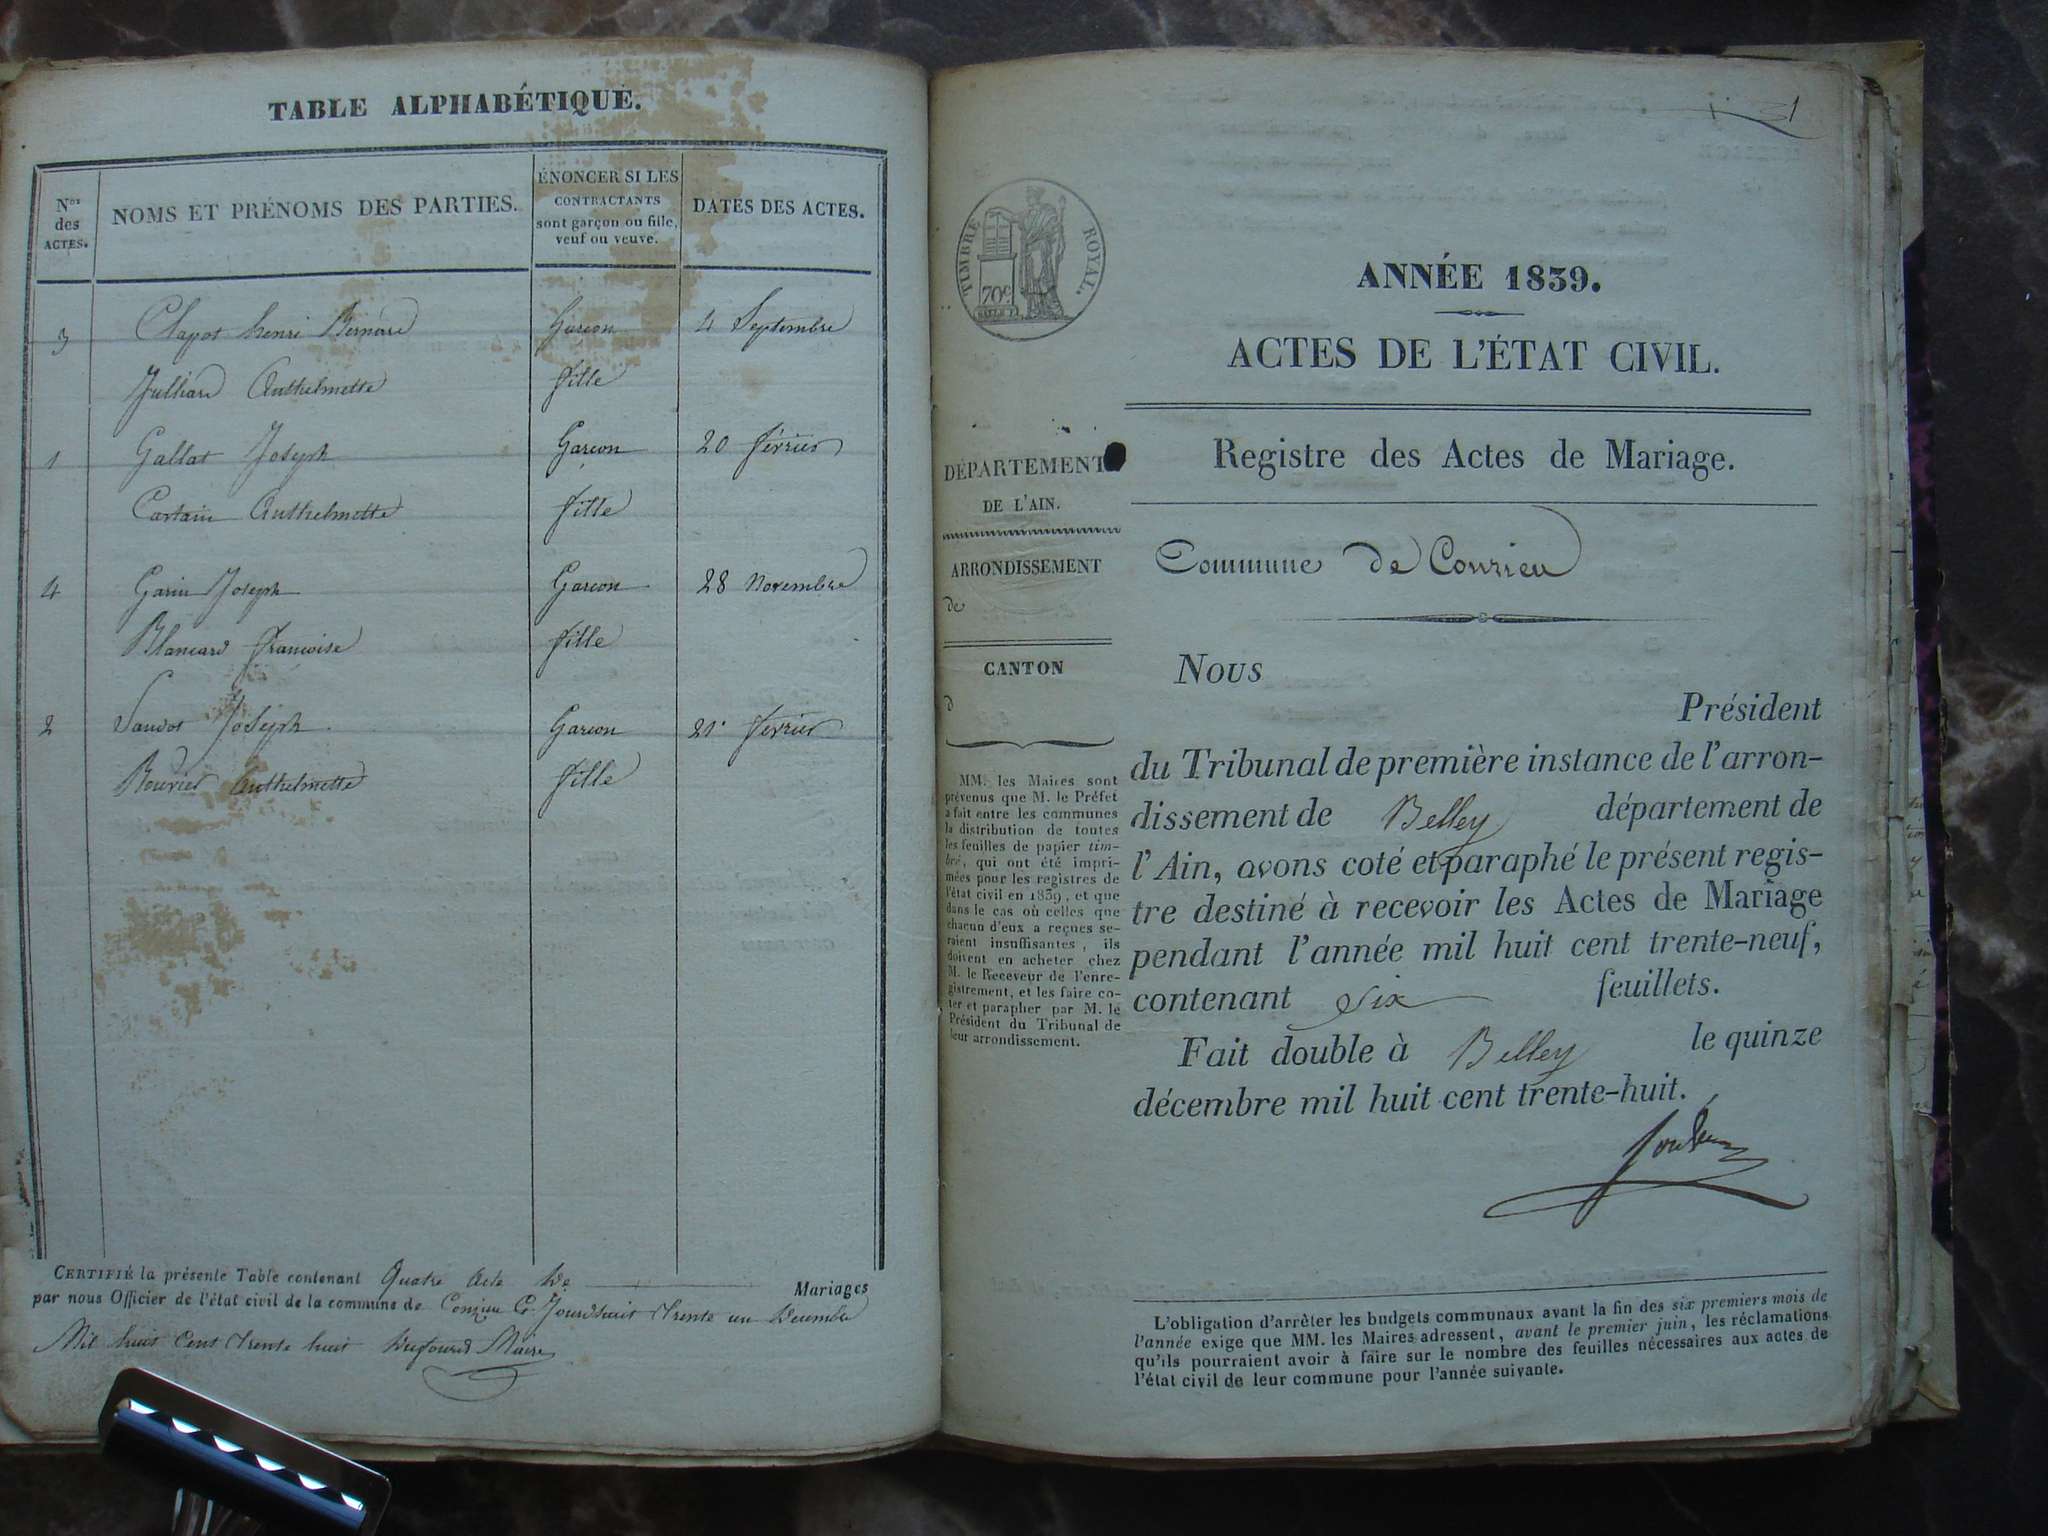 TABLE ALPHABÉTIQUE.
Nos des ACTES.
NOMS ET PRÉNOMS DES PARTIES.
ÉNONCER SI LES
CONTRACTANTS
sont garçon ou fille,
veuf ou veuve.
DATES DES ACTES.
3 Clapot henri Bernard Garcon 4 Septembre
Julliard Anthelmette fille
1 Gallat Joseph Garcon 20 février
Anthelmette fille
4 Garin Joseph Garcon 28 Novembre
Blancard francoise fille
2 Joseph Garcon 21 février
Bouvier Anthelmette fille
CERTIFIÉ la présente Table contenant Quatre acte De Mariages
par nous Officier de l'état civil de la commune de Conzieu Ce Jourdhuit trente un Decembre
Mil huit Cent trente huit Dufourd Maire
31
TIMBRE ROYAL.
70c
ANNÉE 1839.
ACTES DE L'ÉTAT CIVIL.
Registre des Actes de Mariage.
Commune de Conzieu
DÉPARTEMENT
DE L'AIN.
ARRONDISSEMENT
de
CANTON
d
MM. les Maires sont
prévenus que M. le Préfet
a fait entre les communes
la distribution de toutes
les feuilles de papier tim-
bré, qui ont été impri-
mées pour les registres de
l'état civil en 1839, et que
dans le cas où celles que
chacun d'eux a reçues se-
raient insuffisantes, ils
doivent en acheter chez
M. le Receveur de l'enre-
gistrement, et les faire co-
ter et parapher par M. le
Président du Tribunal de
leur arrondissement.
Nous
Président
du Tribunal de première instance de l'arron-
dissement de Belley département de
l'Ain, avons coté et paraphé le présent regis-
tre destiné à recevoir les Actes de Mariage
pendant l'année mil huit cent trente-neuf,
contenant six feuillets.
Fait double à Belley le quinze
décembre mil huit cent trente-huit.
L'obligation d'arrêter les budgets communaux avant la fin des six premiers mois de
l'année exige que MM. les Maires adressent, avant le premier juin, les réclamations
qu'ils pourraient avoir à faire sur le nombre des feuilles nécessaires aux actes de
l'état civil de leur commune pour l'année suivante.